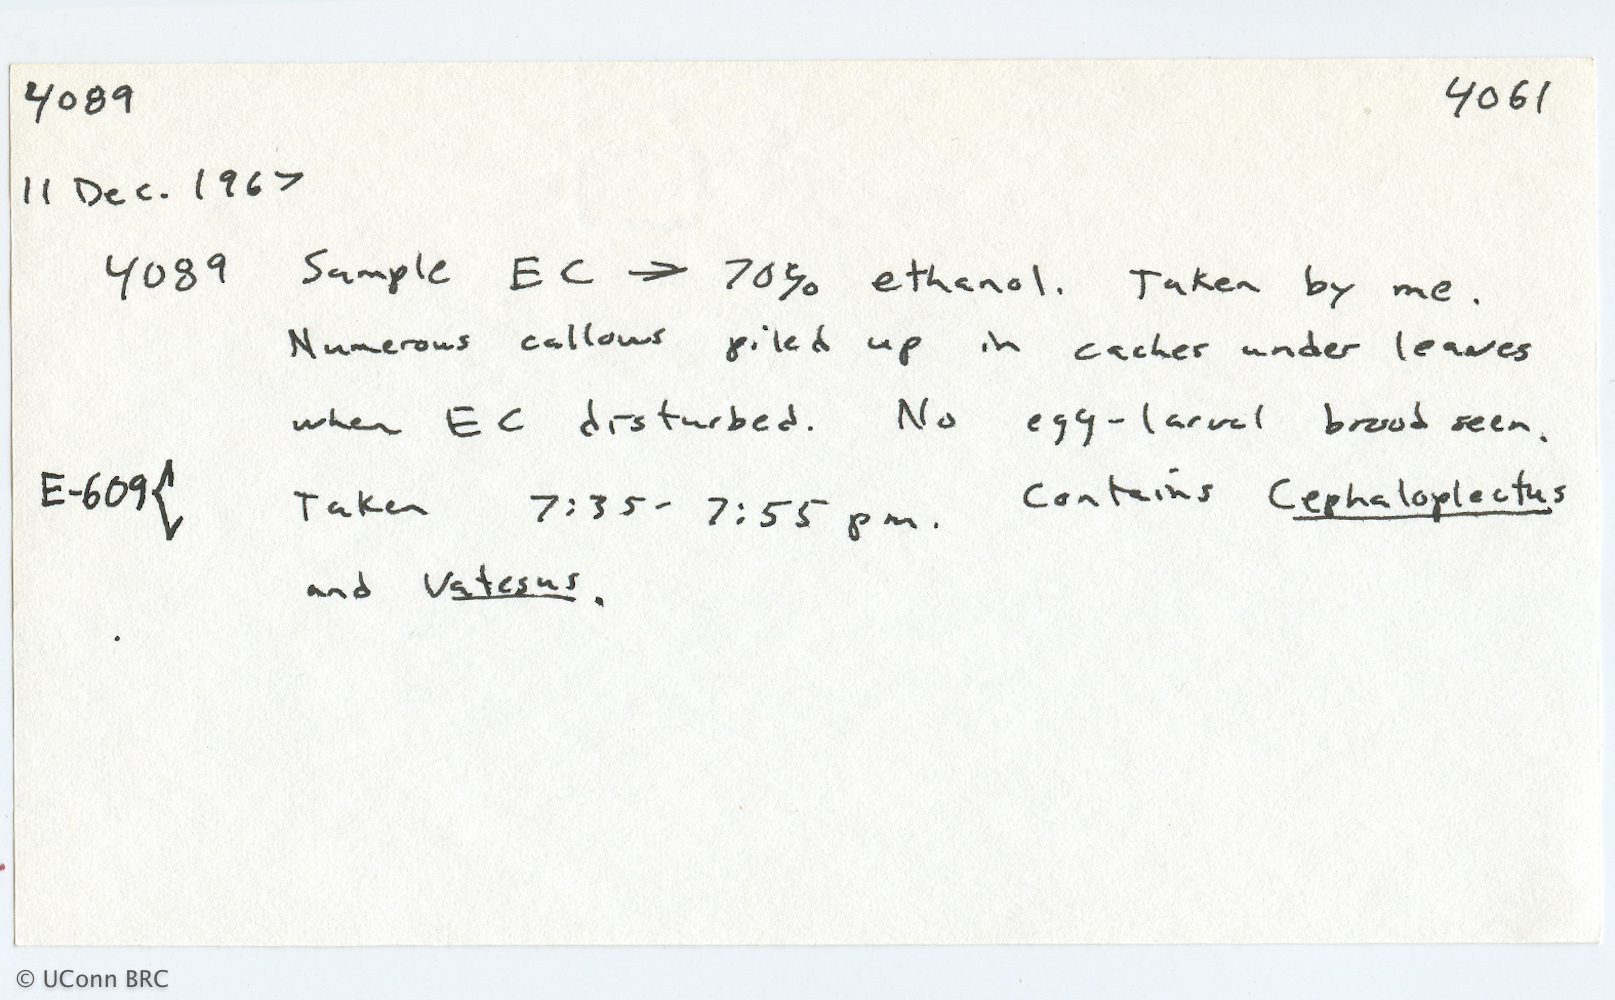 4089 4061
11 Dec. 1967
4089 Sample EC → 70% ethanol. Taken by me.
Numerous callows piled up in caches under leaves
when EC disturbed. No egg-larval brood seen.
E-609{ Taken 7:35-7:55 pm. Contains Cephaloplectus
and Vatesus.
© UConn BRC